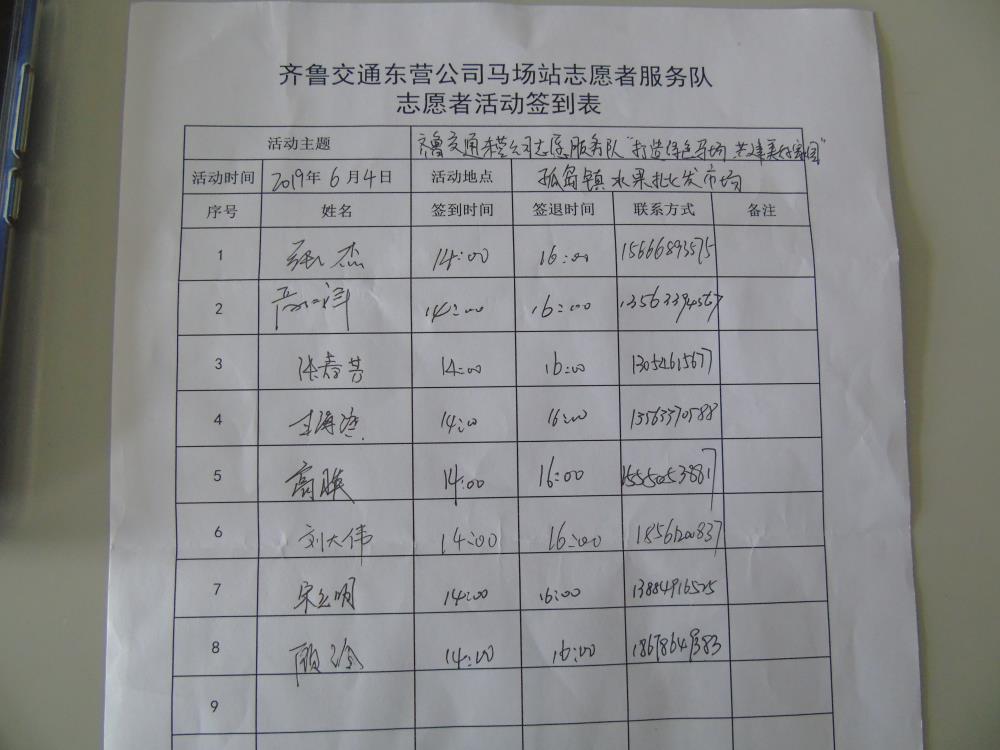 齐鲁交通东营公司马场站志愿者服务队
志愿者活动签到表
活动主题 齐鲁交通东营公司志愿服务队“打造绿色马场 共建美好家园”
活动时间 2019年6月4日 活动地点 孤岛镇水果批发市场
序号 姓名 签到时间 签退时间 联系方式 备注
1 张杰 14:00 16:00 15666893575
2 14:00 16:00 13563394567
3 张春芳 14:00 16:00 13054615677
4 王海 14:00 16:00 13563370588
5 高 14:00 16:00 15550453887
6 刘大伟 14:00 16:00 18561200837
7 宋立明 14:00 16:00 13884916525
8 顾 14:00 16:00 18678649383
9